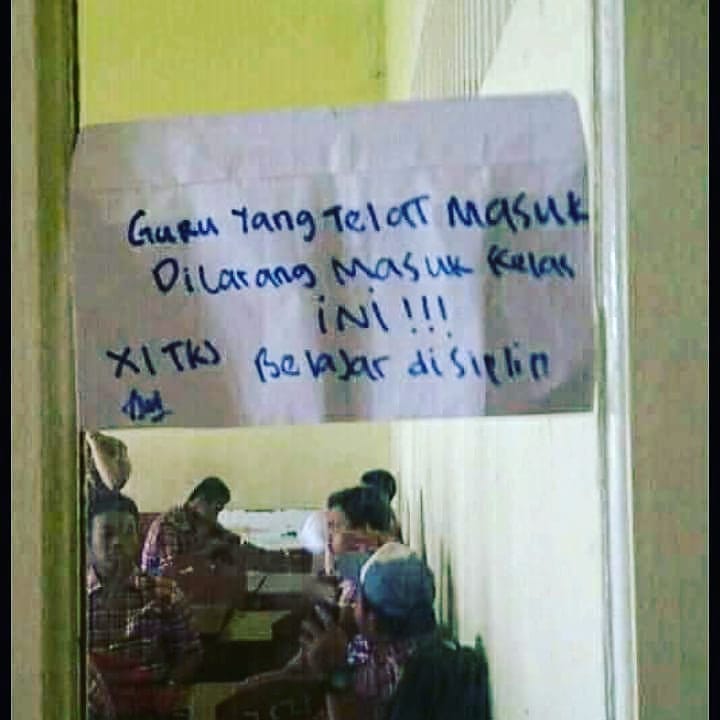 Guru Yang Telat Masuk
Dilarang Masuk Kelas
iNi !!!
XI TKJ Belajar disiplin